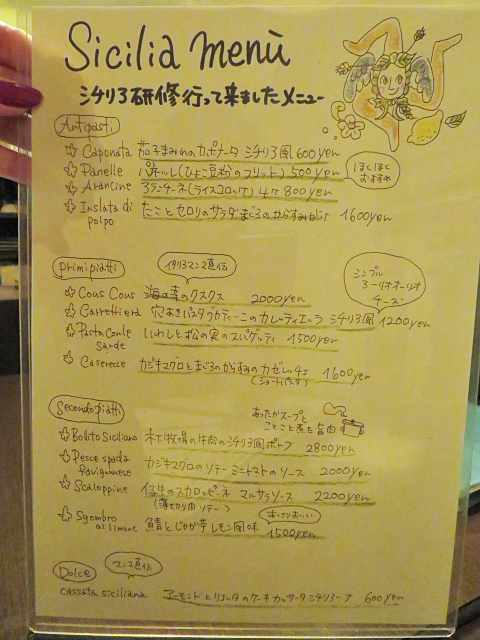 Sicilia menù
シチリア研修行って来ましたメニュー
Antipasti
Caponata 茄子まみれのカポナータ シチリア風 600yen
Panelle パネッレ(ひよこ豆粉のフリット) 500yen
ほくほく
おすすめ
Arancine アランチーネ(ライスコロッケ) 4ケ 800yen
Inslata di
polpo
たことセロリのサラダ まぐろのからすみがけ 1600yen
primipiatti
イタリアマンマ直伝
シンプル
アーリオオーリオ
チーズ
Cous Cous 海の幸のクスクス 2000yen
Carrettiera 穴あきパスタブカティーニのカレッティエッラ シチリア風 1200yen
Pasta con le
Sarde
いわしと松の実のスパゲッティ 1500yen
Caserecce カジキマグロとまぐろのからすみのカゼレッチェ 1600yen
(ショートパスタ)
Secondopiatti
あったかスープと
ことこと煮た旨肉
Bollito Siciliano 牧場の牛肉のシチリア風ボーフ 2800yen
Pesce spada
favignanese
カジキマグロのソテー ミニトマトのソース 2000yen
Scaloppine 仔牛のスカロッピーネ マルサラソース 2200yen
(薄切り肉ソテー)
Sgombro
al limone
鯖とじゃが芋 レモン風味 1500yen
あっさりおいしい
Dolce
マンマ直伝
cassata siciliana アーモンドとリコッタのケーキ カッサータ シチリアーナ 600yen